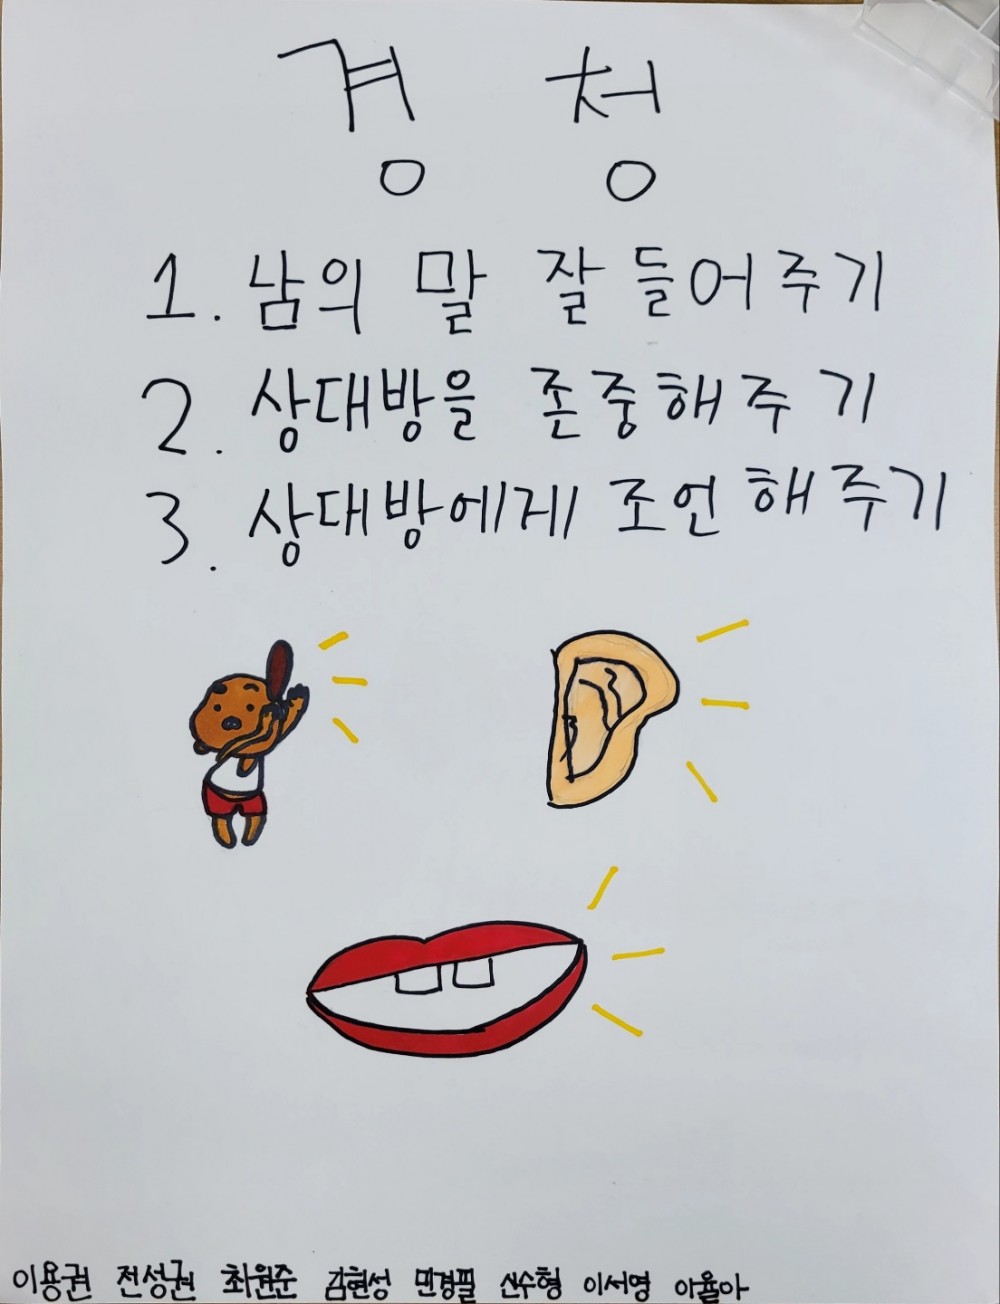 경청
1. 남의 말 잘 들어주기
2. 상대방을 존중해주기
3. 상대방에게 조언해주기
이용권 전성권 최원준 김현성 민경필 신수형 이서영 아율아